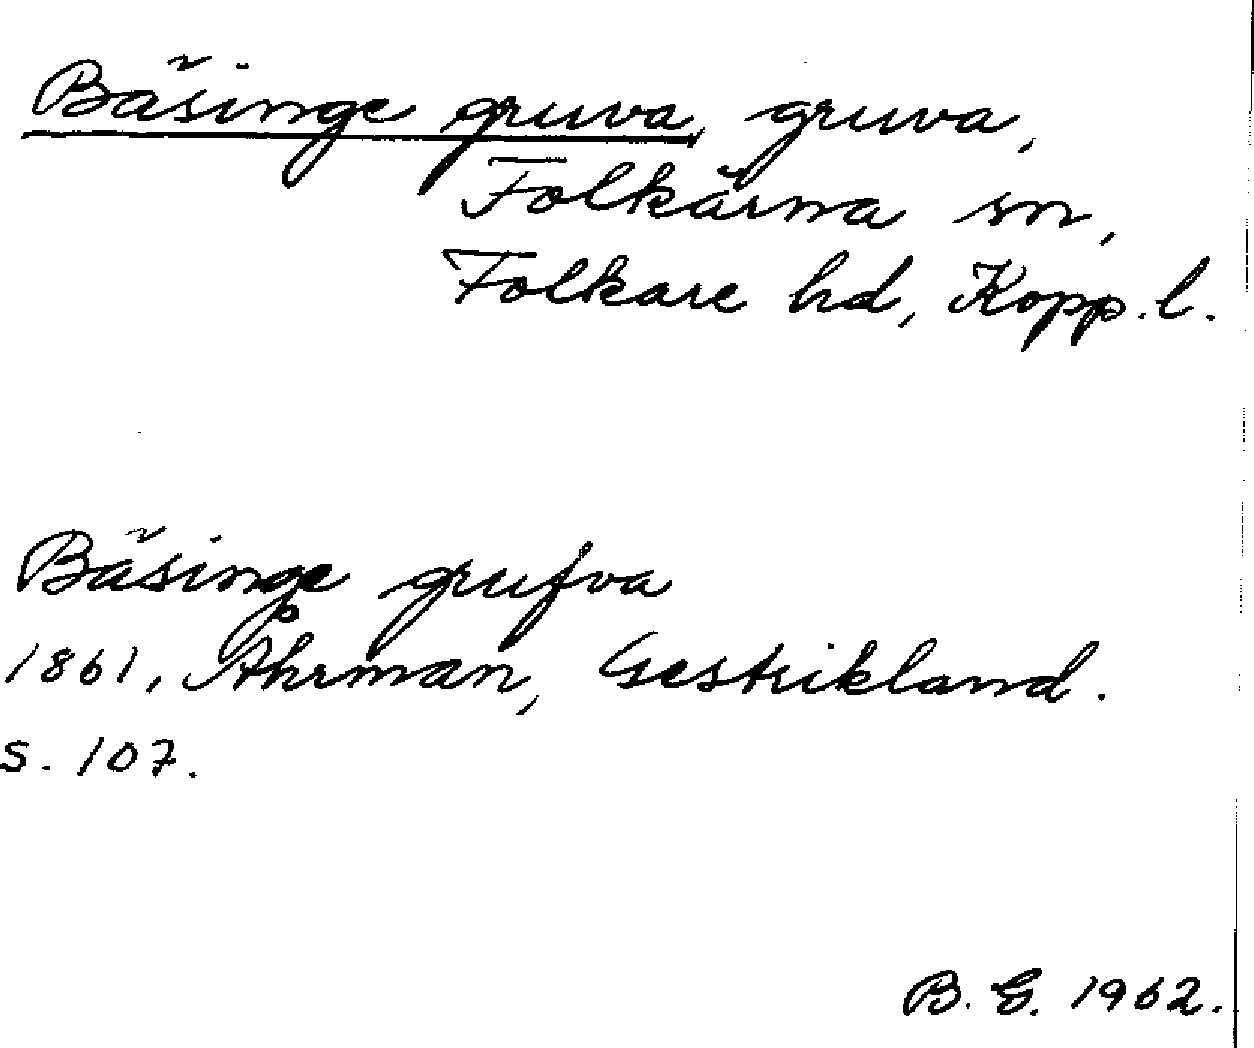 Bäsinge gruva, gruva,
Folkärna sn,
Folkare hd, Kopp. l.
Bäsinge grufva
1861, Åhrman, Gestrikland.
s. 107.
B. G. 1962.